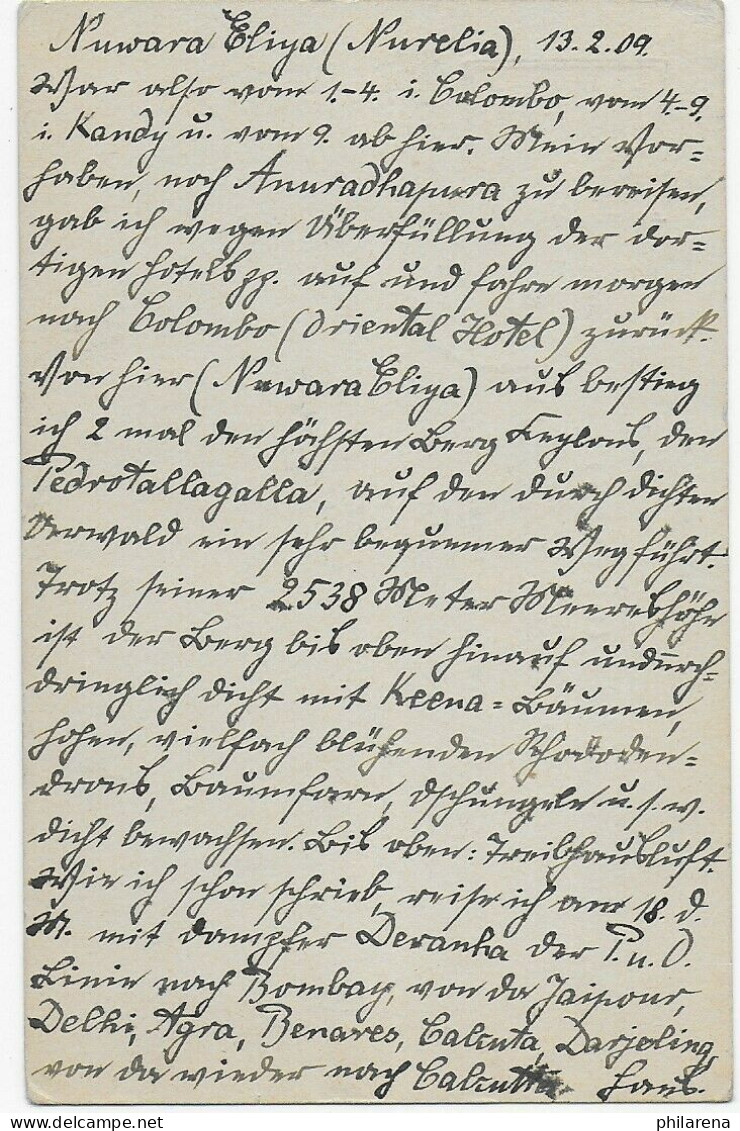 Nuwara Eliya (Nurelia), 13.2.09.
War also vom 1.-4. i. Colombo, vom 4.-9.
i. Kandy u. vom 9. ab hier. Mein Vor=
haben, noch Anuradhapura zu bereisen,
gab ich wegen Überfüllung der dor=
tigen Hotels pp. auf und fahre morgen
nach Colombo (Oriental Hotel) zurück.
Von hier (Nuwara Eliya) aus bestieg
ich 2 mal den höchsten Berg Ceylons, den
Pedrotallagalla, auf den durch dichten
Urwald ein sehr bequemer Weg führt.
Trotz seiner 2538 Meter Meereshöhe
ist der Berg bis oben hinauf undurch=
dringlich dicht mit Keena=Bäumen,
hohen, vielfach blühenden Rhododen=
drons, Baumfarn, Dschungeln u.s.w.
dicht bewachsen. Bis oben: Treibhausluft.
Wie ich schon schrieb, reise ich am 18. d.
M. mit Dampfer Devanha der P. u. O.
Linie nach Bombay, von da Jaipour,
Delhi, Agra, Benares, Calcuta, Darjeling,
von da wieder nach Calcutta Hans.
philarena